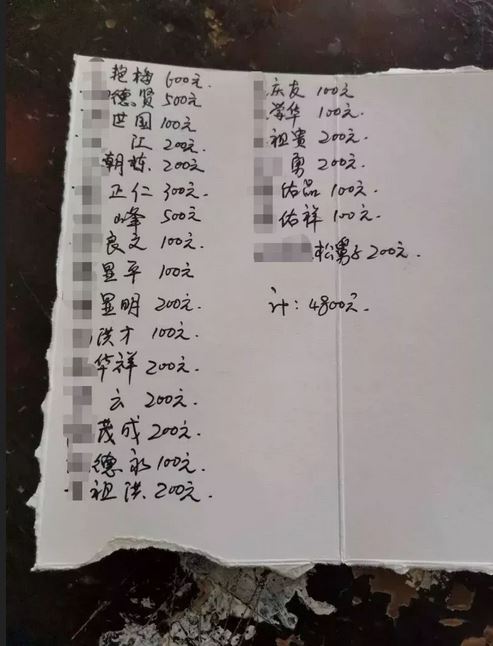 艳梅 600元.
德贤 500元
世国 100元
江 200元.
朝栋 200元
正仁 300元.
峰 500元
良文 100元.
显平 100元
显明 200元.
洪才 100元.
华祥 200元.
云 200元.
茂成 200元.
德永 100元.
祖洪 200元.
庆友 100元
学华 100元.
祖贵 200元.
勇 200元.
佑品 100元.
佑祥 100元.
松舅子 200元.
计: 4800元.